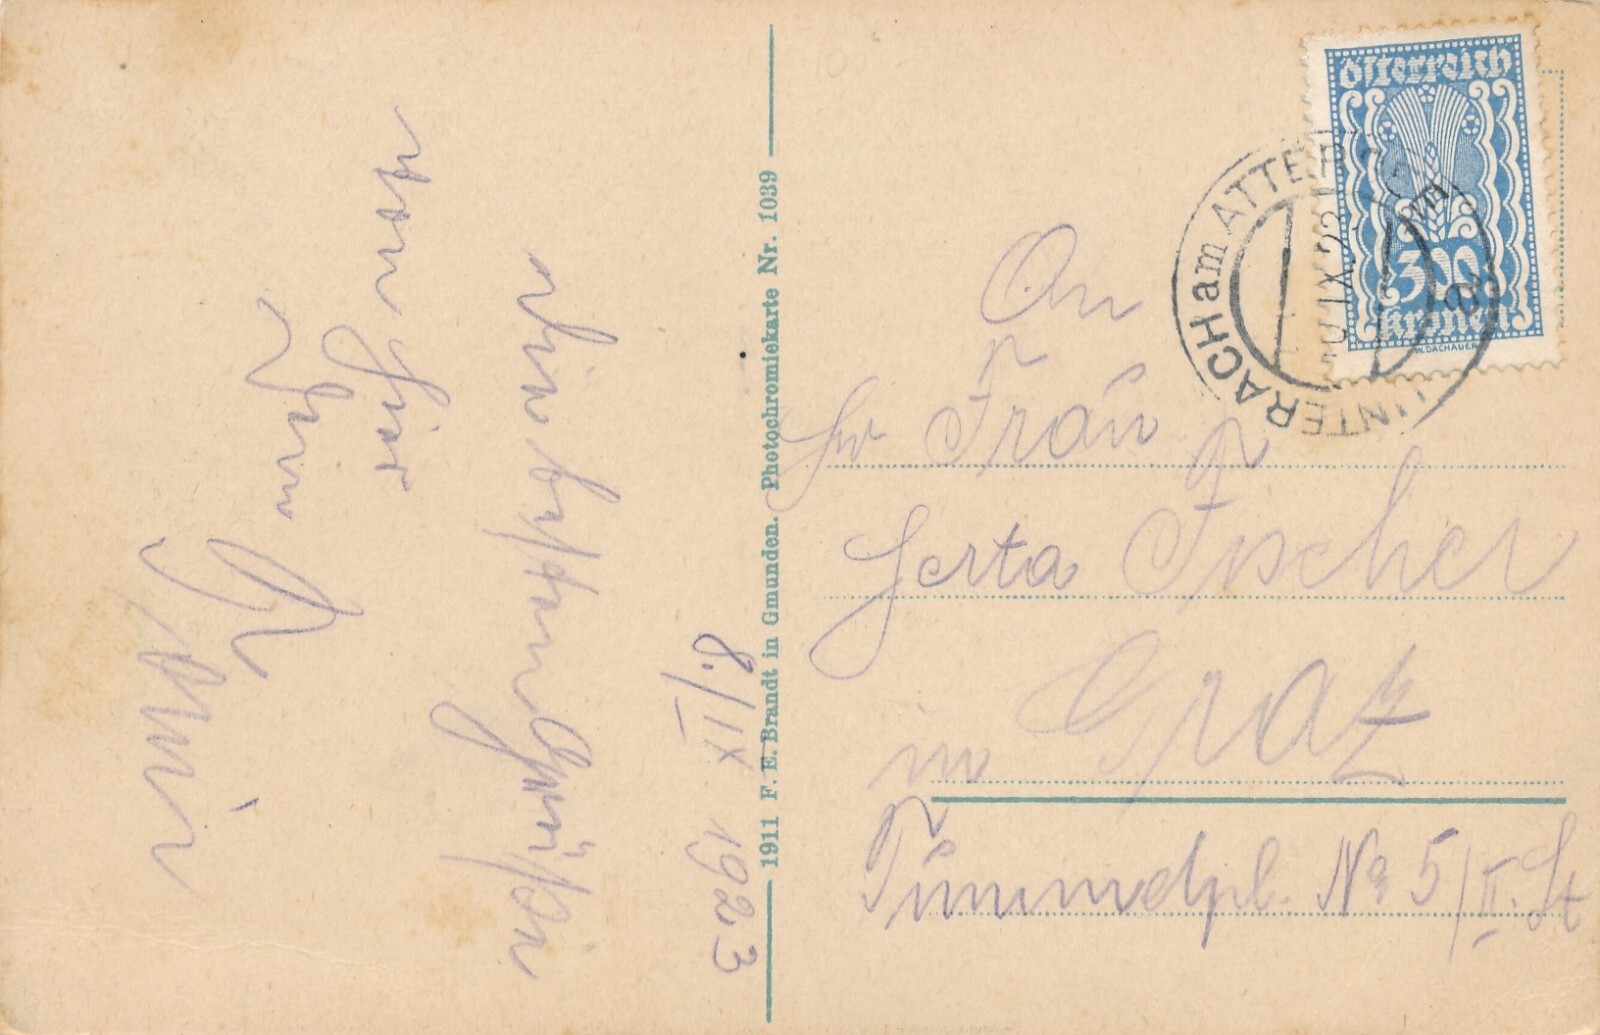 8./IX 1923
Die besten Grüße
von hier
1911 F. E. Brandt in Gmunden. Photochromiekarte Nr. 1039
An
Frau
Herta Fischer
in Graz
Tummelpl. No 5/II. St
österreich
300
kronen
W. DACHAUER
UNTERACH am ATTER
IX. 23